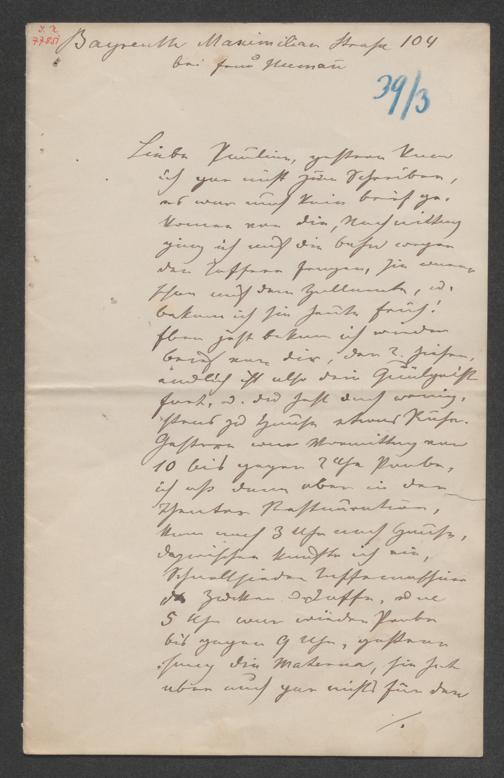 Bayreuth Maximilian Straße 104
bei Frau Neumañ
39/3
Liebe Pauline, gestern kam
ich gar nicht zum Schreiben,
es war auch kein Brief ge-
kommen von dir, Nachmittag
ging ich auf die Bahn wegen
den fragen, sie waren
schon auf dem Zollamte, u.
bekam ich sie heute früh!
Eben jetzt bekam ich wieder
Brief von dir, den 2.
endlich ist also dein
fort, u. du hast doch wenig-
stens zu Hause etwas Ruhe.
Gestern war Vormittag von
10 bis gegen 2 Uhr Probe,
ich aß dann oben in der
Theater Restauration,
kam nach 3 Uhr nach Hause,
dazwischen kaufte ich ein,
5 Uhr war wieder Probe
bis gegen 9 Uhr, gestern
sang die Materna, sie hat
aber auch gar nichts für den